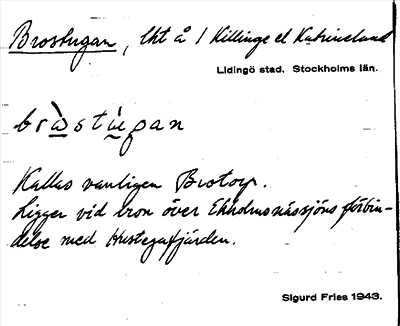 Brostugan, lht å 1 Killinge el Katrinelund
Lidingö stad. Stockholms län.
bròstùgan
Kallas vanligen Brotorp.
Ligger vid bron över Ekholmsnässjöns förbin-
delse med Hustegafjärden.
Sigurd Fries 1943.